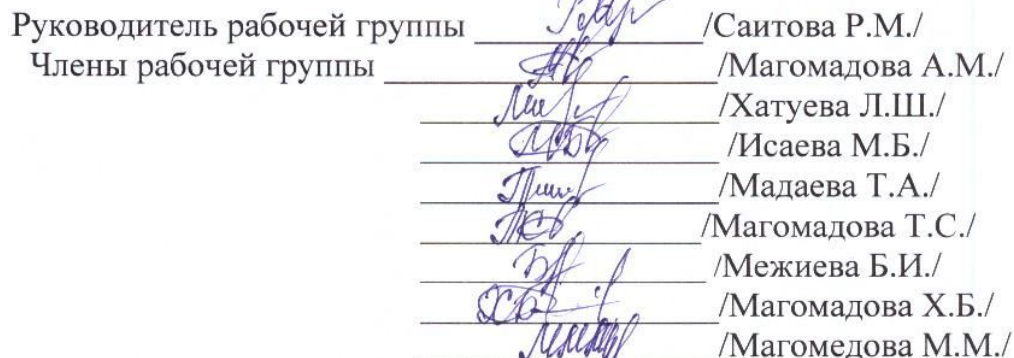 Руководитель рабочей группы /Саитова Р.М./
Члены рабочей группы /Магомадова А.М./
/Хатуева Л.Ш./
/Исаева М.Б./
/Мадаева Т.А./
/Магомадова Т.С./
/Межиева Б.И./
/Магомадова Х.Б./
/Магомедова М.М./